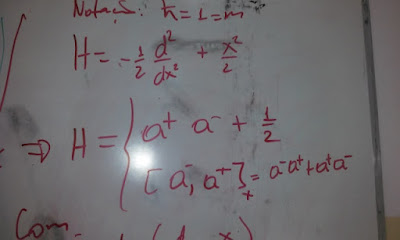 Notação: ħ=1=m
H = -1/2 d²/dx² + x²/2
⇒ H = { a⁺ a⁻ + 1/2
[a⁻, a⁺]₊ = a⁻a⁺ + a⁺a⁻
Com